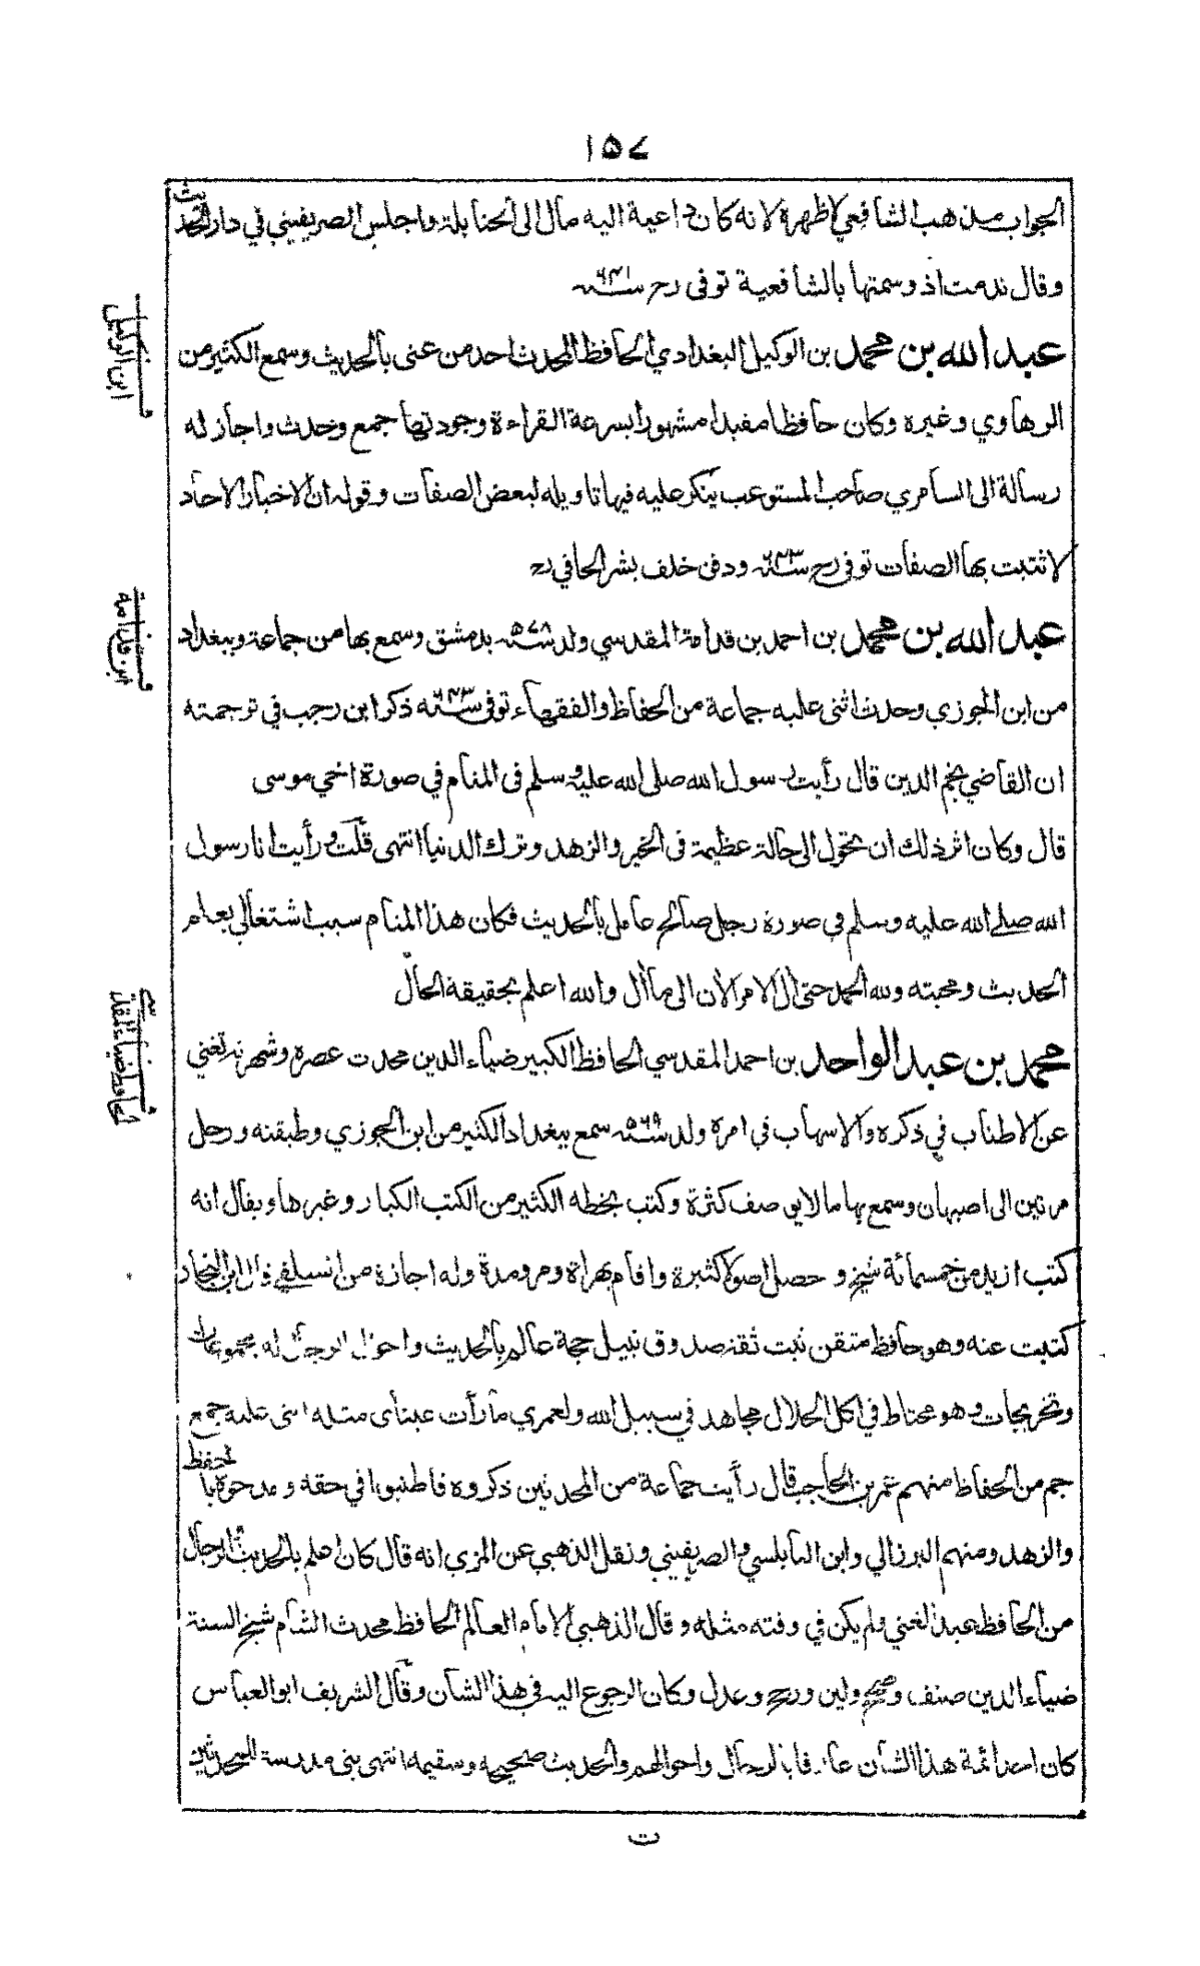 ١٥٧
الجواب مذهب الشافعي لاظهرة لانه كان داعية اليه مال الى الحنابلة واجلس الصريفيني في دار الحديث
وقال ندمت اذ وسمتها بالشافعية توفى رح سنة ٦٤١
عبد الله بن محمد بن الوكيل البغدادي الحافظ المحدث احد من عنى بالحديث وسمع الكثير من
الرهاوي وغيره وكان حافظا مفيدا مشهورا بسرعة القراءة وجودتها جمع وحدث واجاز له
رسالة الى السامري صاحب المستوعب ينكر عليه فيها تاويله لبعض الصفات وقوله ان الاخبار الاحاد
لا تثبت بها الصفات توفى رح سنة ٦٤٣ ودفن خلف بشر الحافي رح
عبد الله بن محمد بن احمد بن قدامة المقدسي ولد سنة ٥٧٨ بدمشق وسمع بها من جماعة وببغداد
من ابن الجوزي وحدث اثنى عليه جماعة من الحفاظ والفقهاء توفى سنة ٦٤٣ ذكر ابن رجب في ترجمته
ان القاضي نجم الدين قال رأيت رسول الله صلى الله عليه وسلم فى المنام في صورة اخي موسى
قال وكان اثر ذلك ان تحول الى حالة عظيمة فى الخير والزهد وترك الدنيا انتهى قلت ورأيت انا رسول
الله صلى الله عليه وسلم في صورة رجل صالح عامل بالحديث فكان هذا المنام سبب اشتغالي بعلم
الحديث ومحبته ولله الحمد حتى ال الامر الان الى ما ال والله اعلم بحقيقة الحال
محمد بن عبد الواحد بن احمد المقدسي الحافظ الكبير ضياء الدين محدث عصره وشهرته تغني
عن الاطناب في ذكره والاسهاب في امره ولد سنة ٥٦٩ سمع ببغداد الكثير من ابن الجوزي وطبقته ورحل
مرتين الى اصبهان وسمع بها ما لا يوصف كثرة وكتب بخطه الكثير من الكتب الكبار وغيرها ويقال انه
كتب ازيد من خمسمائة شيخ وحصل اصولا كثيرة واقام بهراة ومرو مدة وله اجازة من السلفي قال ابن النجار
كتبت عنه وهو حافظ متقن ثبت ثقة صدوق نبيل حجة عالم بالحديث واحوال الرجال له مجموعات
وتخريجات وهو محتاط في اكل الحلال مجاهد في سبيل الله ولعمري ما رأت عيناى مثله اثنى عليه جمع
جم من الحفاظ منهم عمر بن الحاجب قال رأيت جماعة من المحدثين ذكروه فاطنبوا في حقه ومدحوه بالحفظ
والزهد ومنهم البرزالي وابن النابلسي والصريفيني ونقل الذهبي عن المزي انه قال كان اعلم بالحديث والرجال
من الحافظ عبد الغني ولم يكن في وقته مثله وقال الذهبي الامام العالم الحافظ محدث الشام شيخ السنة
ضياء الدين صنف وصحح ولين وجرح وعدل وكان الرجوع اليه في هذا الشان وقال الشريف ابو العباس
كان احد ائمة هذا الشان عارفا بالرجال واحوالهم والحديث صحيحه وسقيمه انتهى بنى مدرسة للمحدثين
ت
ابن الوكيل
ابن قدامة
الحافظ ضياء المقدسي